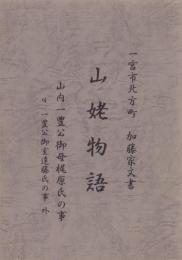 一宮市北方町 加藤家文書
山姥物語
山内一豊公御母梶原氏の事
〃 一豊公御室遠藤氏の事 外